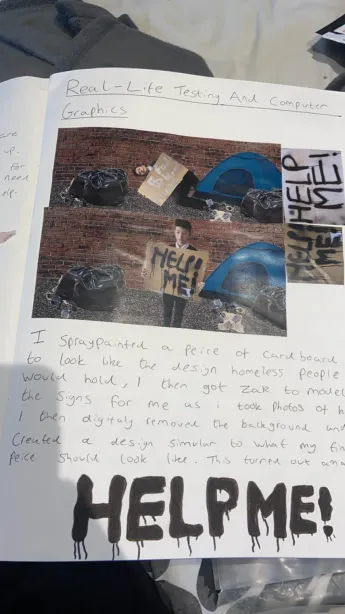 Real-Life Testing And Computer
Graphics
are
up.
for
need
HELP
ME!
HELP
ME!
HELP!
ME!
I Spraypainted a peice of Cardboard
to look like the design homeless people
would hold, I then got Zak to model
the Signs for me as i took photos of h
I then digitaly removed the background and
Created a design simular to what my fin
Peice Should look like. This turned out ama
HELP ME!